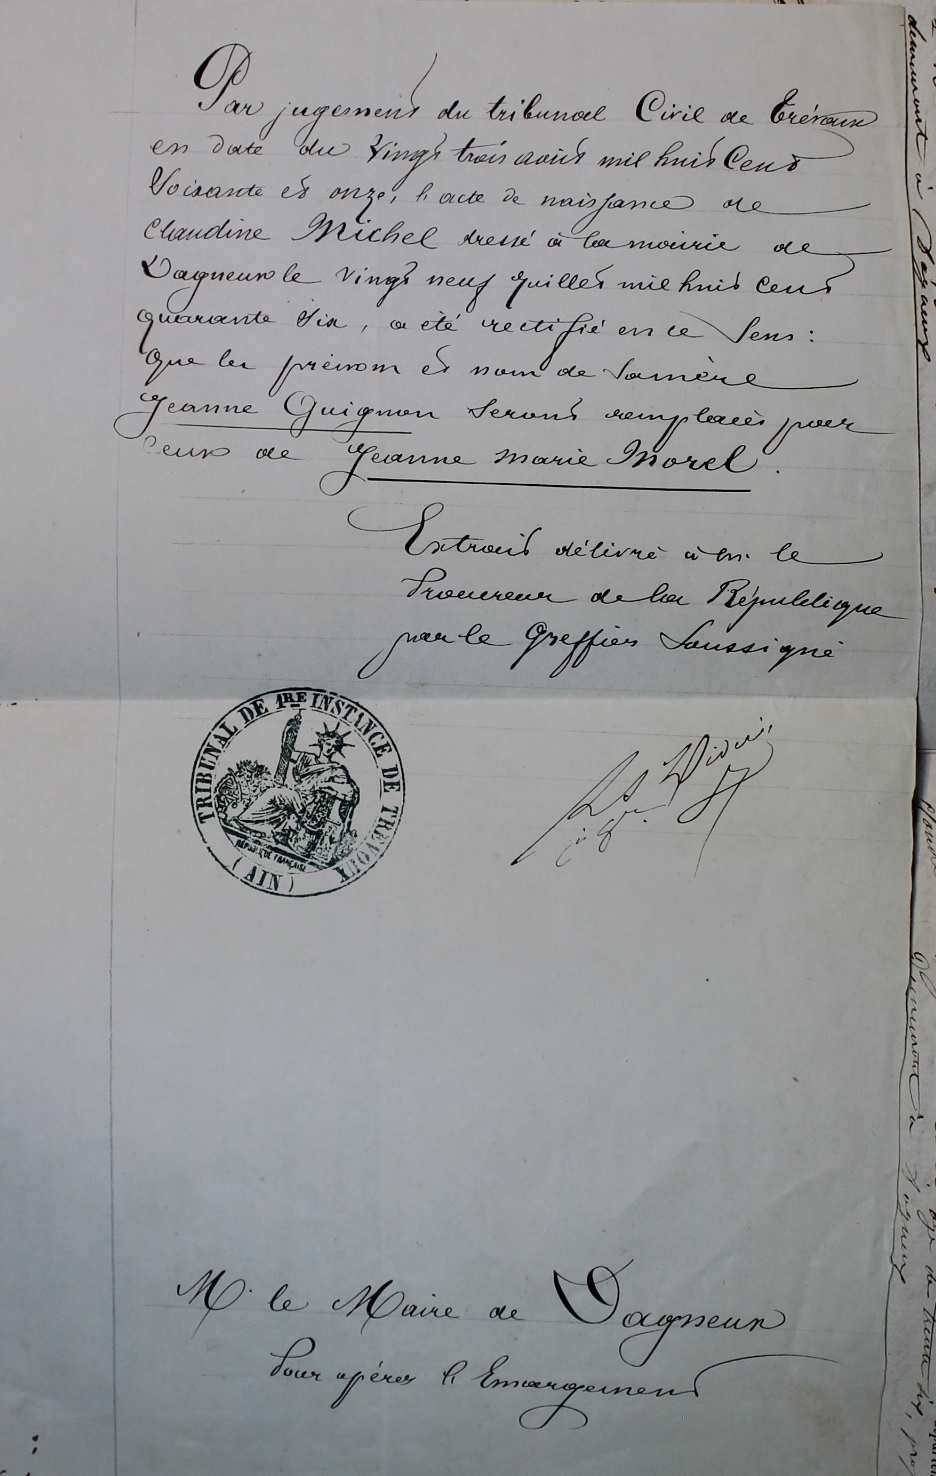 Par jugement du tribunal Civil de Trévoux
en date du vingt trois août mil huit Cent
Soixante et onze, l'acte de naissance de
Claudine Michel dressé à la mairie de
Dagneux le vingt neuf Juillet mil huit Cent
quarante Six, a été rectifié en ce Sens :
que les prénom et nom de Sa mère
Jeanne Guignon Seront remplacés par
Ceux de Jeanne Marie Morel.
Extrait délivré à M. le
Procureur de la République
par le Greffier Soussigné
TRIBUNAL DE 1RE INSTANCE DE TREVOUX
RÉPUBLIQUE FRANÇAISE
(AIN)
M. le Maire de Dagneux
Pour opérer l'Emargement